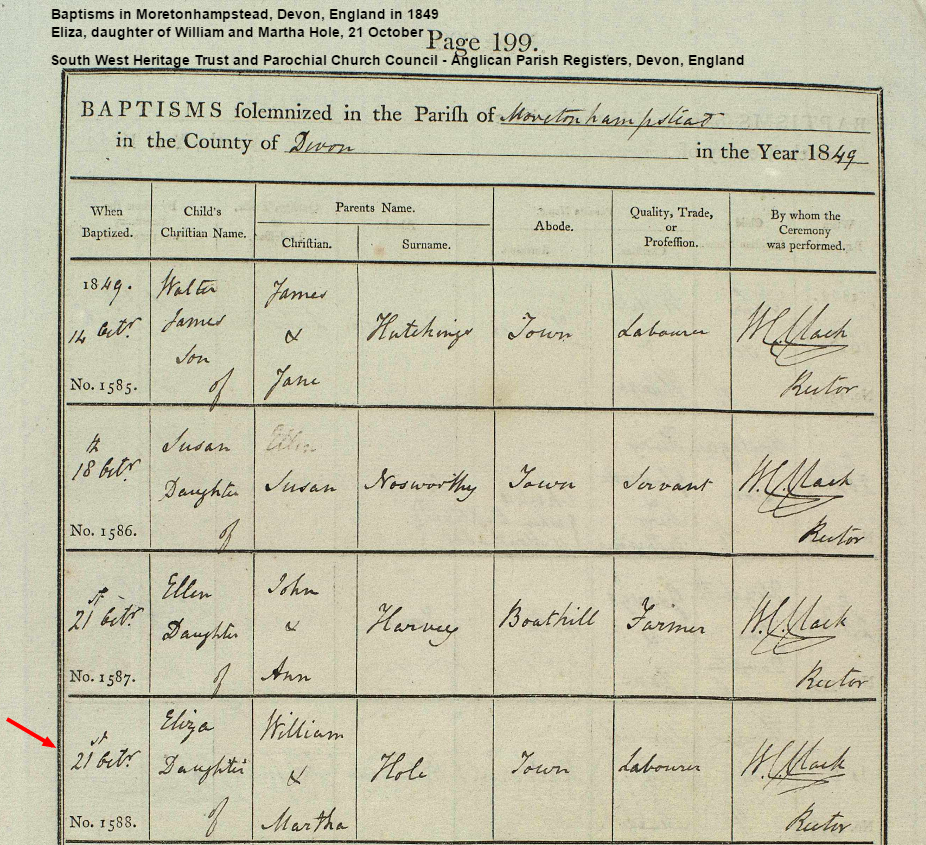 Baptisms in Moretonhampstead, Devon, England in 1849
Eliza, daughter of William and Martha Hole, 21 October
Page 199.
South West Heritage Trust and Parochial Church Council - Anglican Parish Registers, Devon, England
BAPTISMS solemnized in the Parish of Moretonhampstead
in the County of Devon in the Year 1849
When Baptized. Child's Christian Name. Parents Name. Christian. Surname. Abode. Quality, Trade, or Profession. By whom the Ceremony was performed.
1849. Walter James
14 Octr. James & Hutchings Town Labourer W.C. Clack
Son
No. 1585. of Jane Rector
th Susan
18 Octr. Daughter Susan Nosworthy Town Servant W.C. Clack
No. 1586. of Rector
st Ellen John
21 Octr. Daughter & Harvey Boathill Farmer W.C. Clack
No. 1587. of Ann Rector
st Eliza William
21 Octr. Daughter & Hole Town Labourer W.C. Clack
No. 1588. of Martha Rector